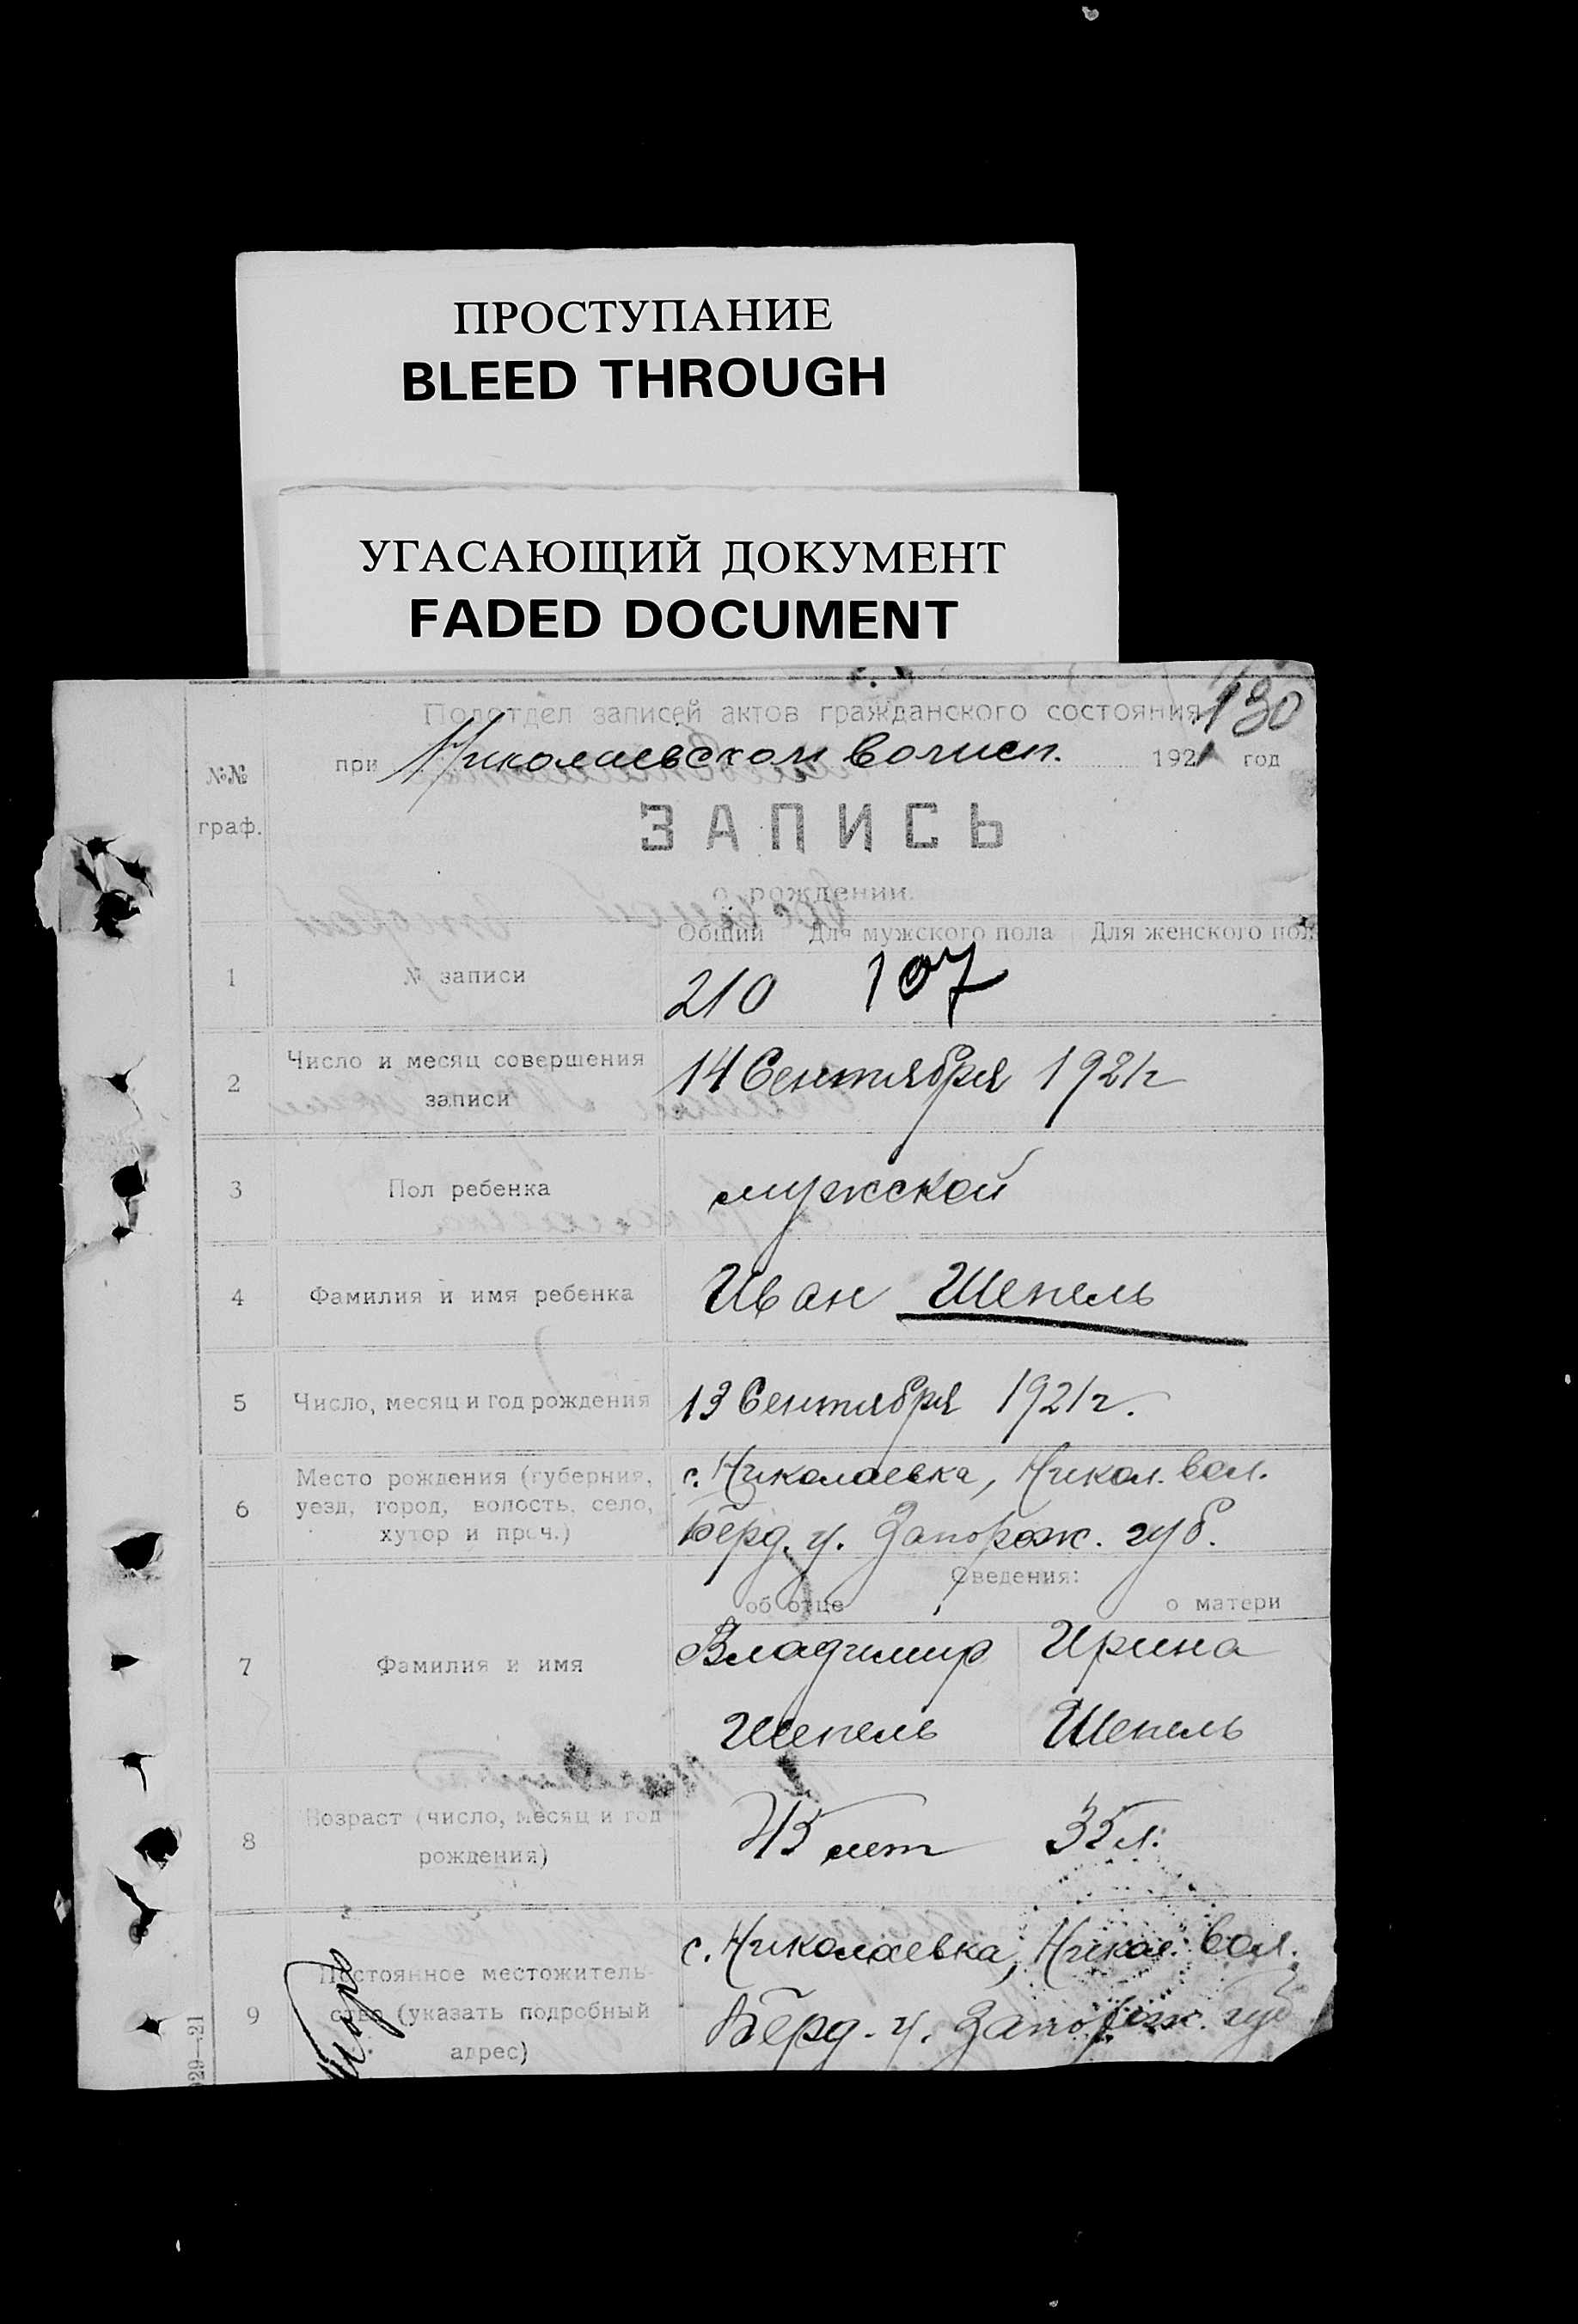 ПРОСТУПАНИЕ
BLEED THROUGH
УГАСАЮЩИЙ ДОКУМЕНТ
FADED DOCUMENT
130
Подотдел записей актов гражданского состояния
при Николаевском волисп. 1921 год
№№ граф.
ЗАПИСЬ
о рождении.
Общий Для мужского пола Для женского пол
1 № записи 210 107
2 Число и месяц совершения записи 14 Сентября 1921 г
3 Пол ребенка мужской
4 Фамилия и имя ребенка Иван Шепель
5 Число, месяц и год рождения 13 Сентября 1921 г.
6 Место рождения (губерния, уезд, город, волость, село, хутор и проч.) с. Николаевка, Никол. вол.
Берд. у. Запорож. губ.
Сведения:
об отце о матери
7 Фамилия и имя Владимир Ирина
Шепель Шепель
8 Возраст (число, месяц и год рождения) 45 лет 35 л.
9 Постоянное местожительство (указать подробный адрес) с. Николаевка, Никол. вол.
Берд. у. Запорож. губ
29—21